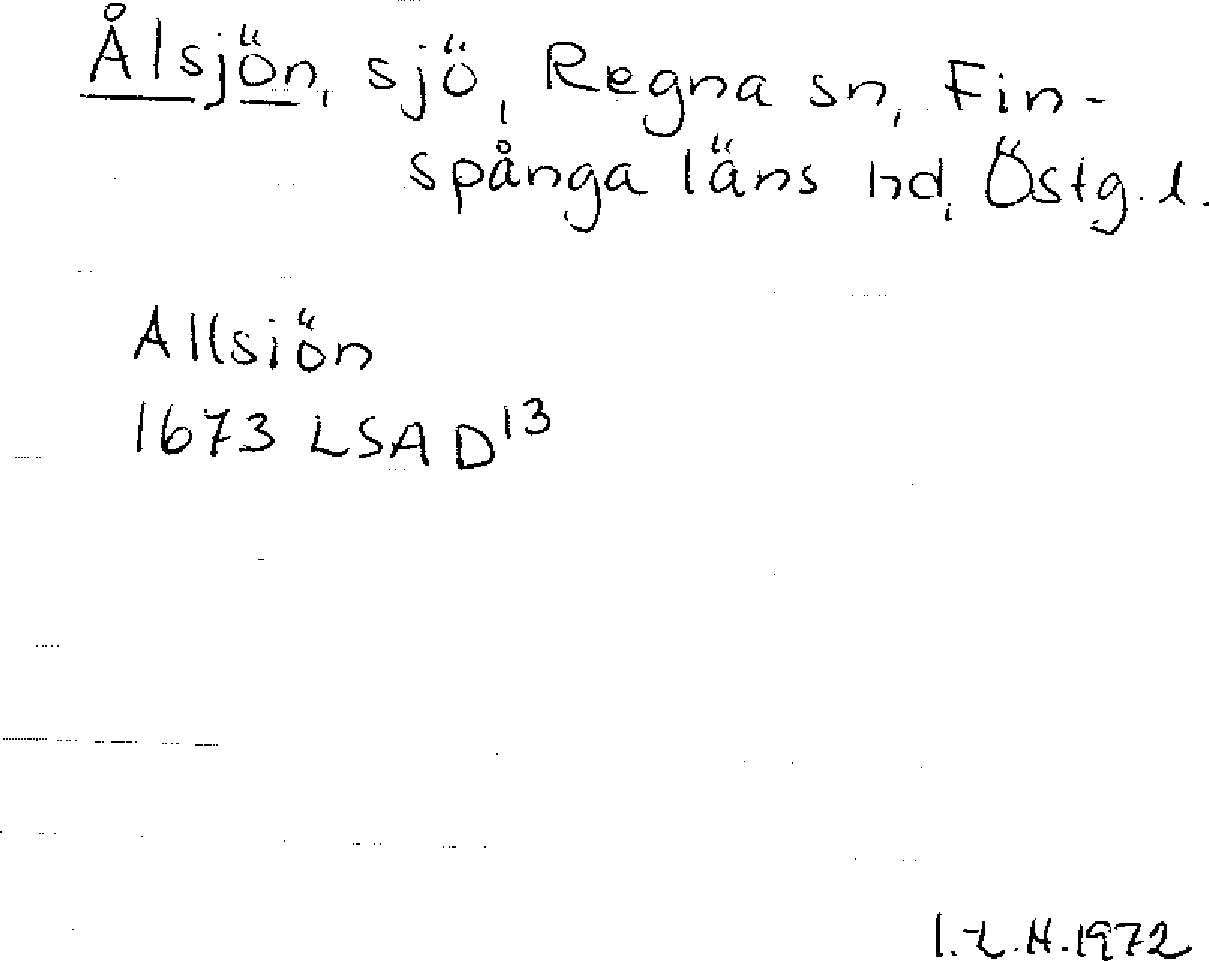 Ålsjön, sjö, Regna sn, Fin-
spånga läns hd, Östg. l.
Allsiön
1673 LSA D13
I.L.H. 1972